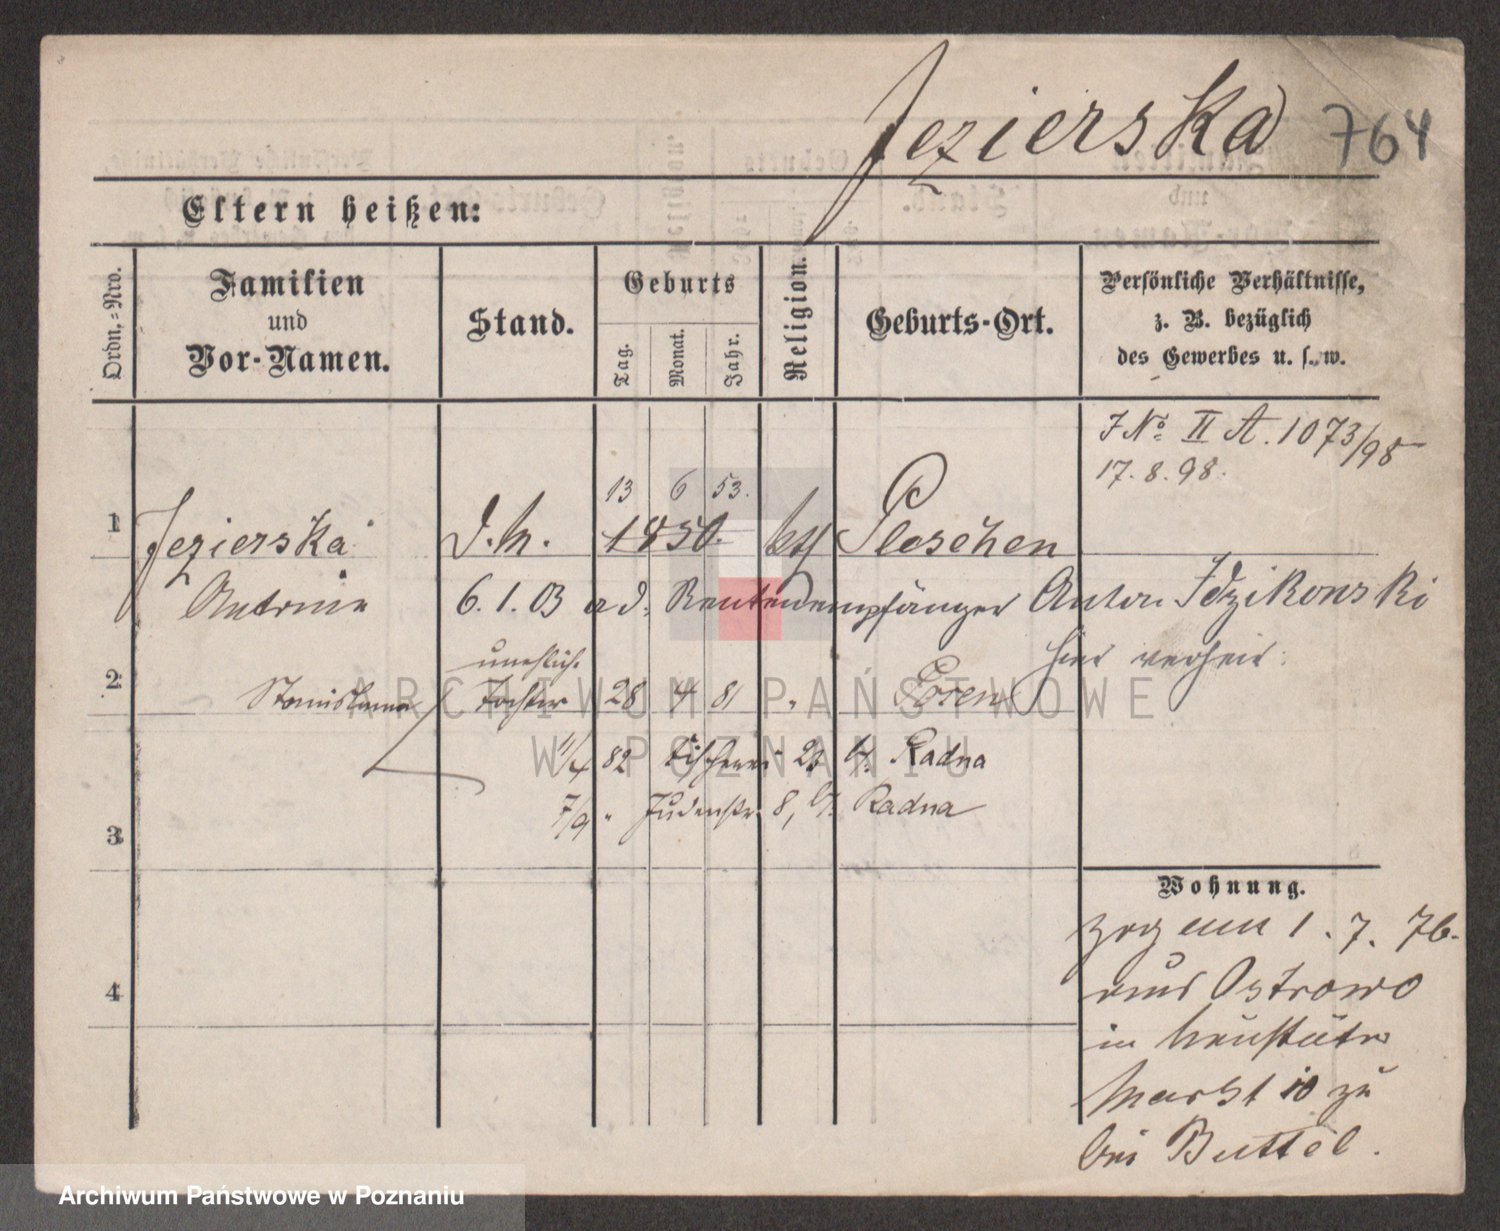 Jezierska 764
Eltern heißen:
Ordn.-Nro.
Familien
und
Vor-Namen.
Stand.
Geburts
Tag.
Monat.
Jahr.
Religion.
Geburts-Ort.
Persönliche Verhältnisse,
z. B. bezüglich
des Gewerbes u. s. w.
J№ II A. 1073/98
17. 8. 98.
13 6 53.
1 Jezierska 1850. kth Pleschen
Antonie 6. 1. 03 ad. Rentenempfänger Anton Idzikowski
hier verheir.
unehlich
2 Stanislawa Tochter 28 4 81 " Posen
11/4 82 Fischerei 21 b. Radna
7/9 " Judenstr. 8, b. Radna
3
4
Wohnung.
zog am 1. 7. 76.
aus Ostrowo
in Neustädter
Markt 10 zu
bei Buttel.
ARCHIWUM PAŃSTWOWE
W POZNANIU
Archiwum Państwowe w Poznaniu